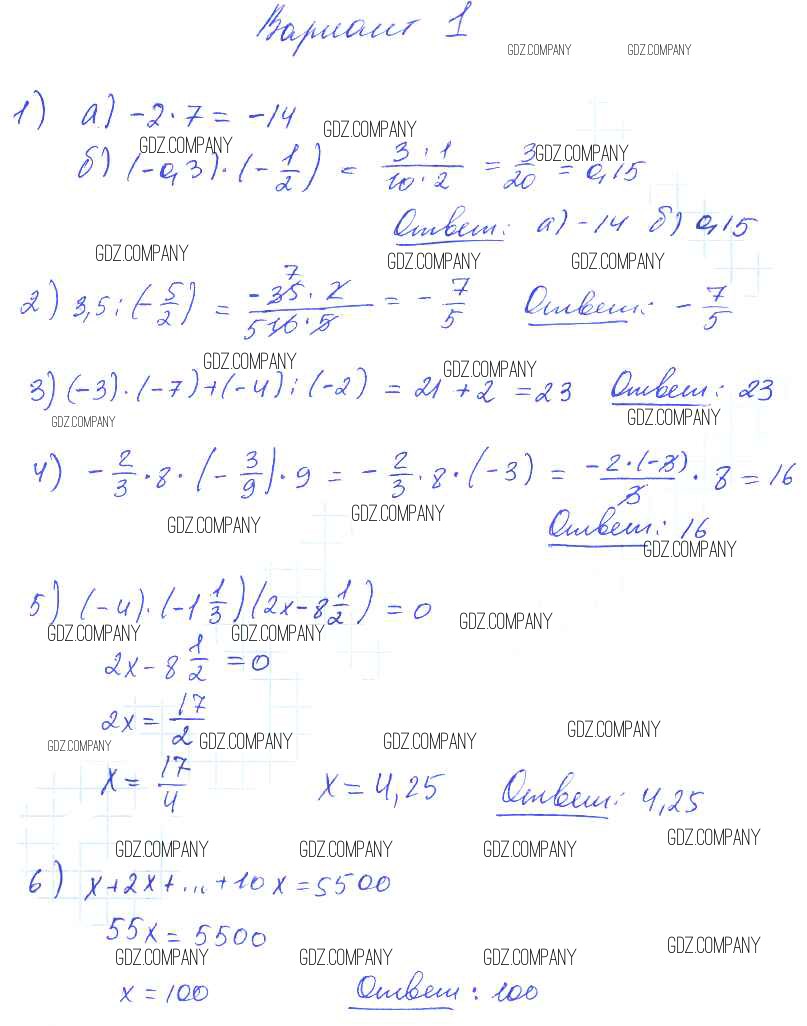 Вариант 1
GDZ.COMPANY GDZ.COMPANY
1) а) -2·7 = -14
GDZ.COMPANY GDZ.COMPANY
б) (-0,3)·(-1/2) = 3·1/10·2 = 3/20 = 0,15
GDZ.COMPANY
Ответ: а) -14 б) 0,15
GDZ.COMPANY GDZ.COMPANY GDZ.COMPANY
2) 3,5:(-5/2) = -35·2/10·5 = -7/5 Ответ: -7/5
GDZ.COMPANY GDZ.COMPANY
3) (-3)·(-7)+(-4):(-2) = 21+2 = 23 Ответ: 23
GDZ.COMPANY GDZ.COMPANY
4) -2/3·8·(-3/9)·9 = -2/3·8·(-3) = -2·(-3)/3·8 = 16
GDZ.COMPANY GDZ.COMPANY
Ответ: 16
GDZ.COMPANY
5) (-4)·(-1 1/3)(2x-8 1/2) = 0
GDZ.COMPANY GDZ.COMPANY GDZ.COMPANY
2x-8 1/2 = 0
2x = 17/2
GDZ.COMPANY GDZ.COMPANY GDZ.COMPANY GDZ.COMPANY
x = 17/4 x = 4,25 Ответ: 4,25
GDZ.COMPANY GDZ.COMPANY GDZ.COMPANY GDZ.COMPANY
6) x+2x+...+10x = 5500
55x = 5500
GDZ.COMPANY GDZ.COMPANY GDZ.COMPANY GDZ.COMPANY
x = 100 Ответ: 100